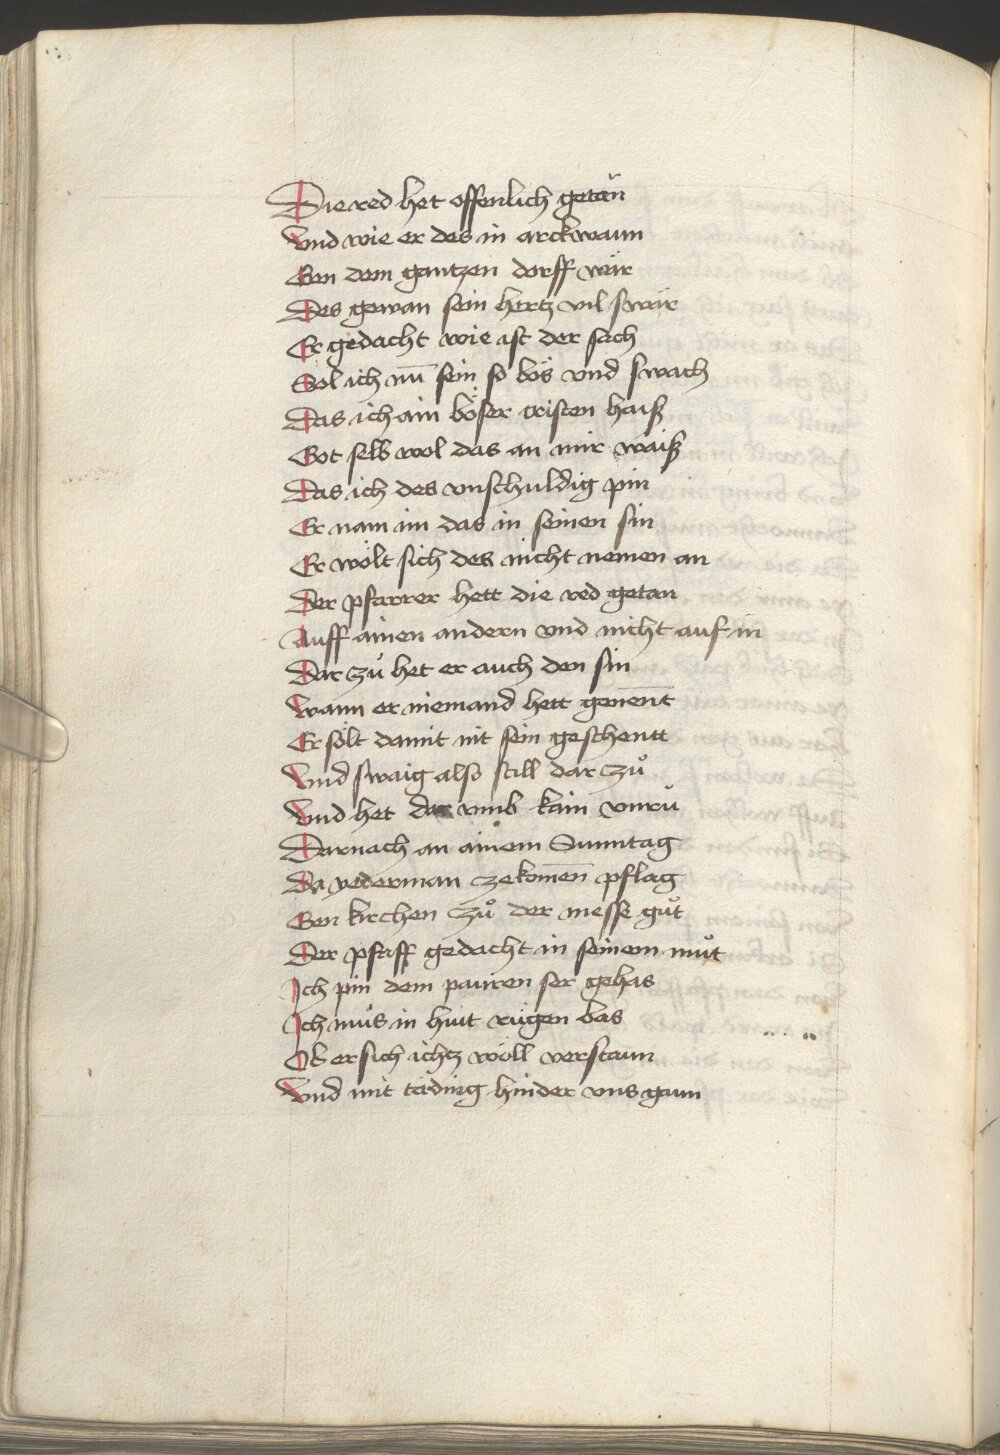 Die red het offenlich getän
Vnd wie er des in arckwaun
Gen dem gantzen dorff wär
Des gewan sein hertz vil swär
Er gedacht wie ist der sach
Sol ich nu̅ sein so bös vnd swach
Das ich ain böser cristen haiß
Got selb wol das an mir waiß
Das ich des vnschuldig pin
Er nam im das in seinen sin
Er wölt sich des nicht nemen an
Der pfarrer hett die red getan
Auff ainen andern vnd nicht auf in
Dar zuͦ het er auch den sin
Wann er niemand hett gene̅nt
Er sölt damit nit sein geschentt
Vnd swaig also still dar zuͦ
Vnd het dar vmb kain vnruͦ
Darnach an ainem Sunntag
Da yederman zekome̅n pflag
Gen kirchen zuͦ der messe guͦt
Der pfaff gedacht in seinem muͦt
Ich pin dem pauren ser gehas
Ich muͦs in hiut rügen bas
Ob er sich ichtz wöll verstaun
Vnd mit täding hinder vns gaun